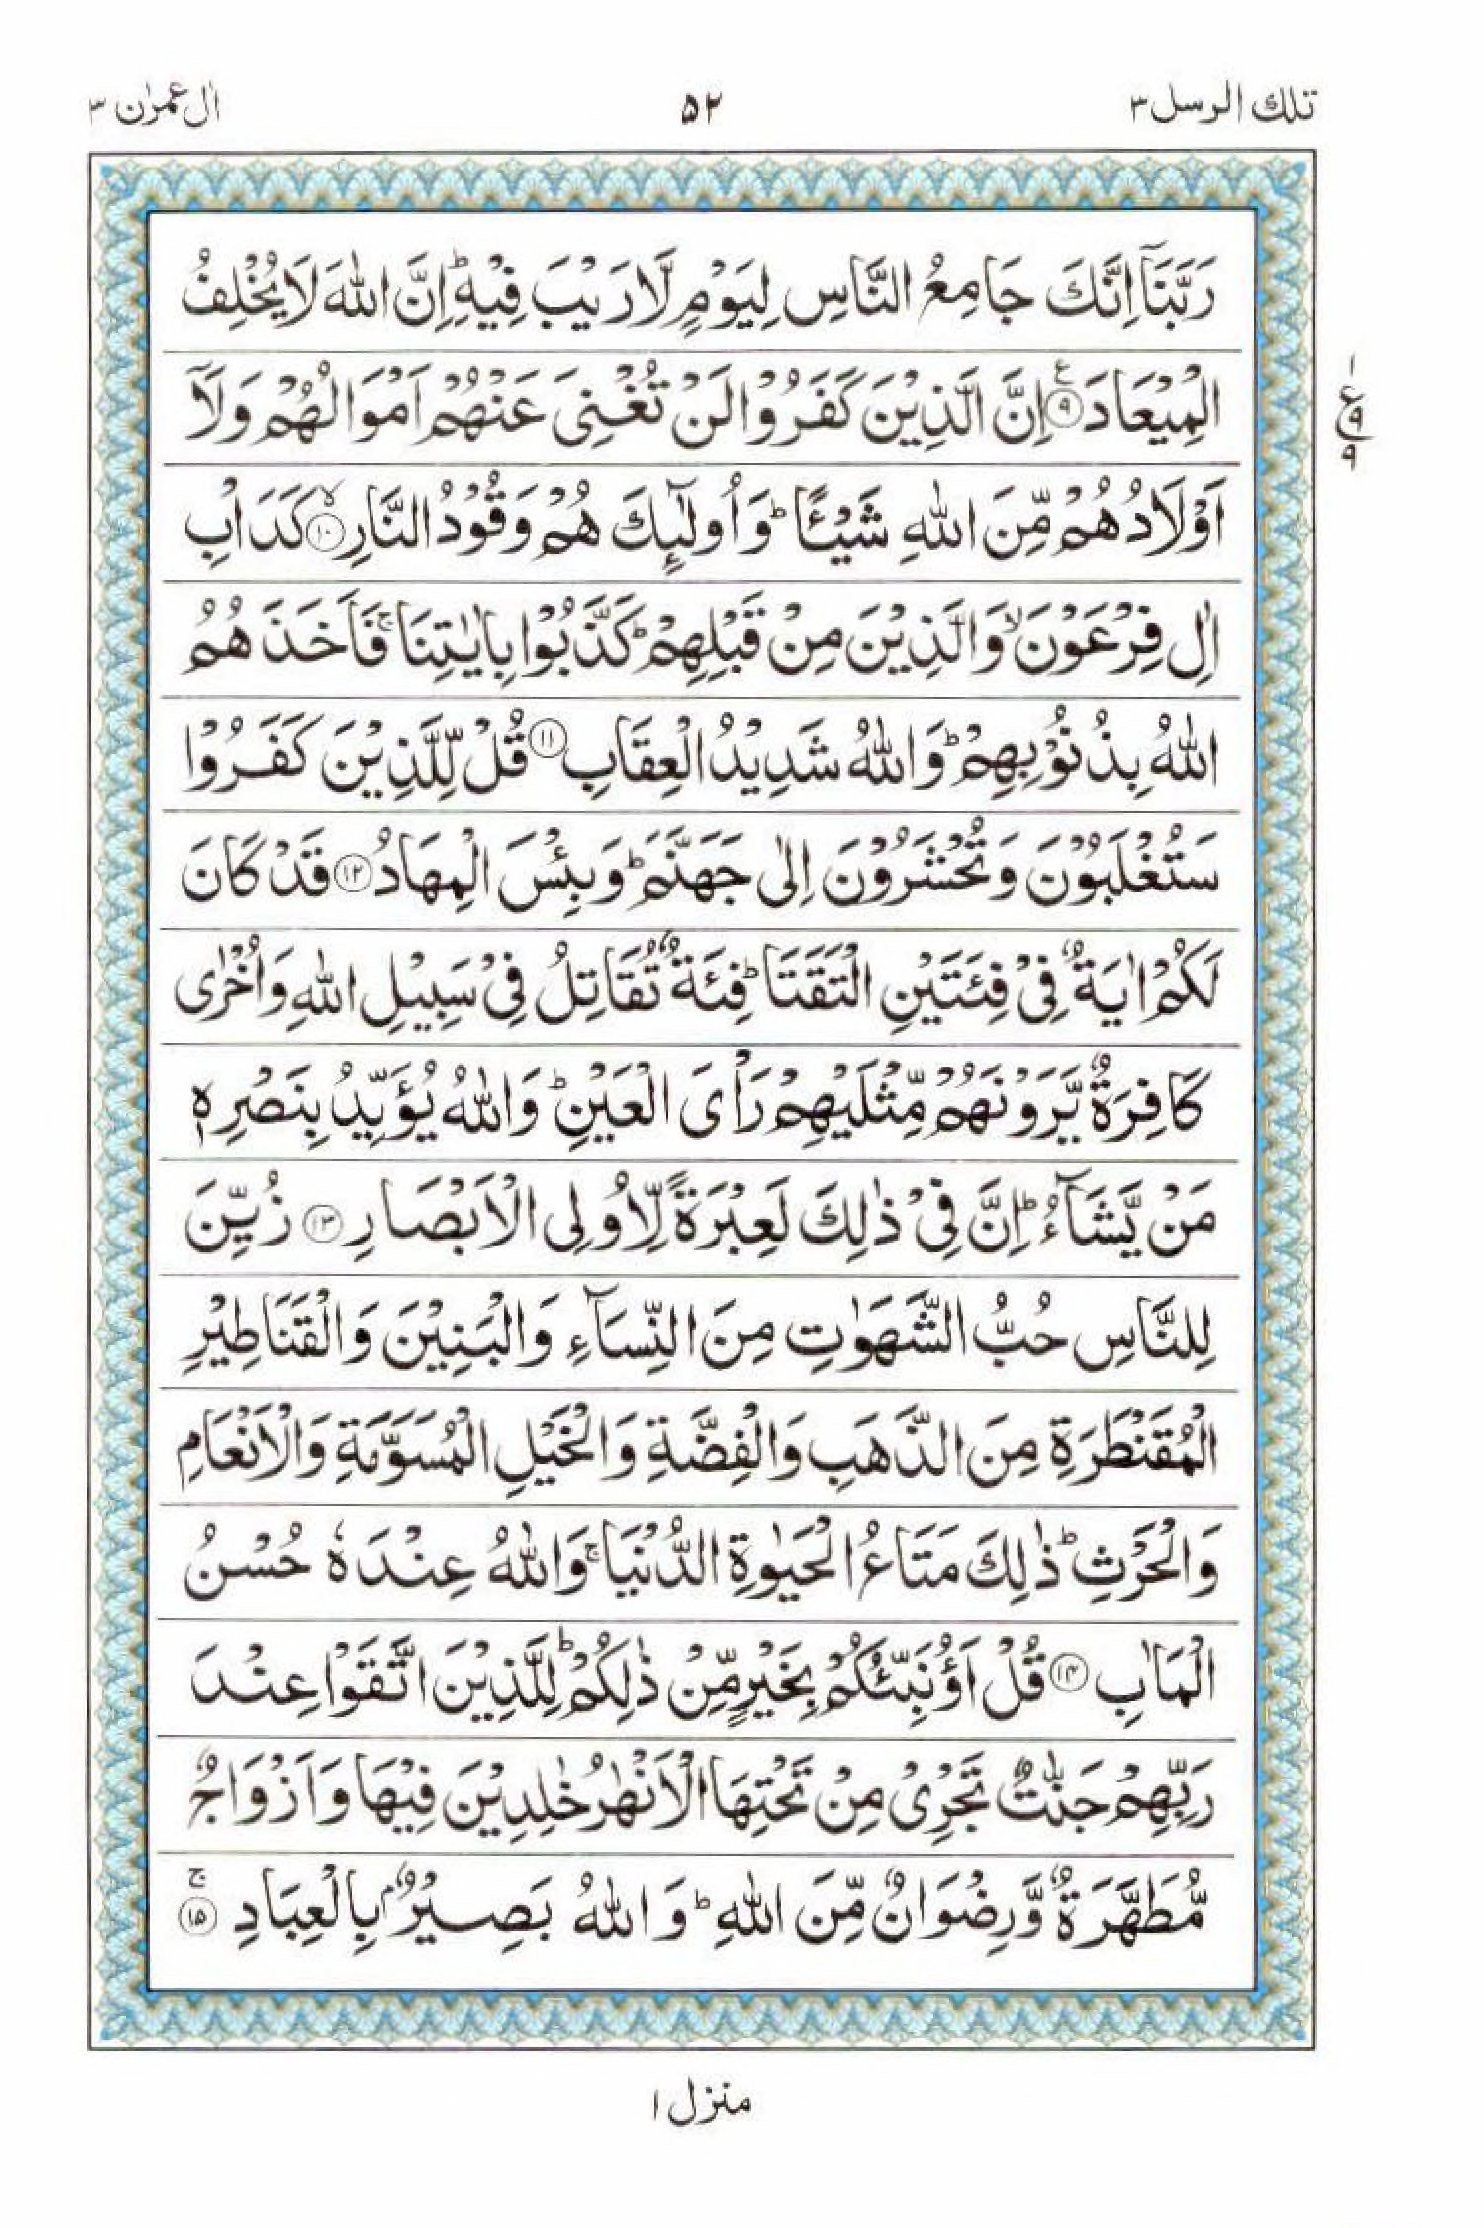 تلك الرسل ٣
٥٢
اٰل عمرٰن ٣
رَبَّنَاۤ اِنَّكَ جَامِعُ النَّاسِ لِيَوْمٍ لَّا رَيْبَ فِيْهِ ؕ اِنَّ اللّٰهَ لَا يُخْلِفُ
الْمِيْعَادَ ﴿۹﴾ؑ اِنَّ الَّذِيْنَ كَفَرُوْا لَنْ تُغْنِىَ عَنْهُمْ اَمْوَالُهُمْ وَلَاۤ
١
ع
٩
٩
اَوْلَادُهُمْ مِّنَ اللّٰهِ شَيْـًٔا ؕ وَاُولٰٓئِكَ هُمْ وَقُوْدُ النَّارِ ﴿۱۰﴾ۙ كَدَاْبِ
اٰلِ فِرْعَوْنَ ۙ وَالَّذِيْنَ مِنْ قَبْلِهِمْ ؕ كَذَّبُوْا بِاٰيٰتِنَا ۚ فَاَخَذَهُمُ
اللّٰهُ بِذُنُوْبِهِمْ ؕ وَاللّٰهُ شَدِيْدُ الْعِقَابِ ﴿۱۱﴾ قُلْ لِّلَّذِيْنَ كَفَرُوْا
سَتُغْلَبُوْنَ وَتُحْشَرُوْنَ اِلٰى جَهَنَّمَ ؕ وَبِئْسَ الْمِهَادُ ﴿۱۲﴾ قَدْ كَانَ
لَكُمْ اٰيَةٌ فِىْ فِئَتَيْنِ الْتَقَتَا ؕ فِئَةٌ تُقَاتِلُ فِىْ سَبِيْلِ اللّٰهِ وَاُخْرٰى
كَافِرَةٌ يَّرَوْنَهُمْ مِّثْلَيْهِمْ رَاْىَ الْعَيْنِ ؕ وَاللّٰهُ يُؤَيِّدُ بِنَصْرِهٖ
مَنْ يَّشَآءُ ؕ اِنَّ فِىْ ذٰلِكَ لَعِبْرَةً لِّاُولِى الْاَبْصَارِ ﴿۱۳﴾ زُيِّنَ
لِلنَّاسِ حُبُّ الشَّهَوٰتِ مِنَ النِّسَآءِ وَالْبَنِيْنَ وَالْقَنَاطِيْرِ
الْمُقَنْطَرَةِ مِنَ الذَّهَبِ وَالْفِضَّةِ وَالْخَيْلِ الْمُسَوَّمَةِ وَالْاَنْعَامِ
وَالْحَرْثِ ؕ ذٰلِكَ مَتَاعُ الْحَيٰوةِ الدُّنْيَا ۚ وَاللّٰهُ عِنْدَهٗ حُسْنُ
الْمَاٰبِ ﴿۱۴﴾ قُلْ اَؤُنَبِّئُكُمْ بِخَيْرٍ مِّنْ ذٰلِكُمْ ؕ لِلَّذِيْنَ اتَّقَوْا عِنْدَ
رَبِّهِمْ جَنّٰتٌ تَجْرِىْ مِنْ تَحْتِهَا الْاَنْهٰرُ خٰلِدِيْنَ فِيْهَا وَاَزْوَاجٌ
مُّطَهَّرَةٌ وَّرِضْوَانٌ مِّنَ اللّٰهِ ؕ وَاللّٰهُ بَصِيْرٌۢ بِالْعِبَادِ ﴿۱۵﴾ۚ
منزل ١